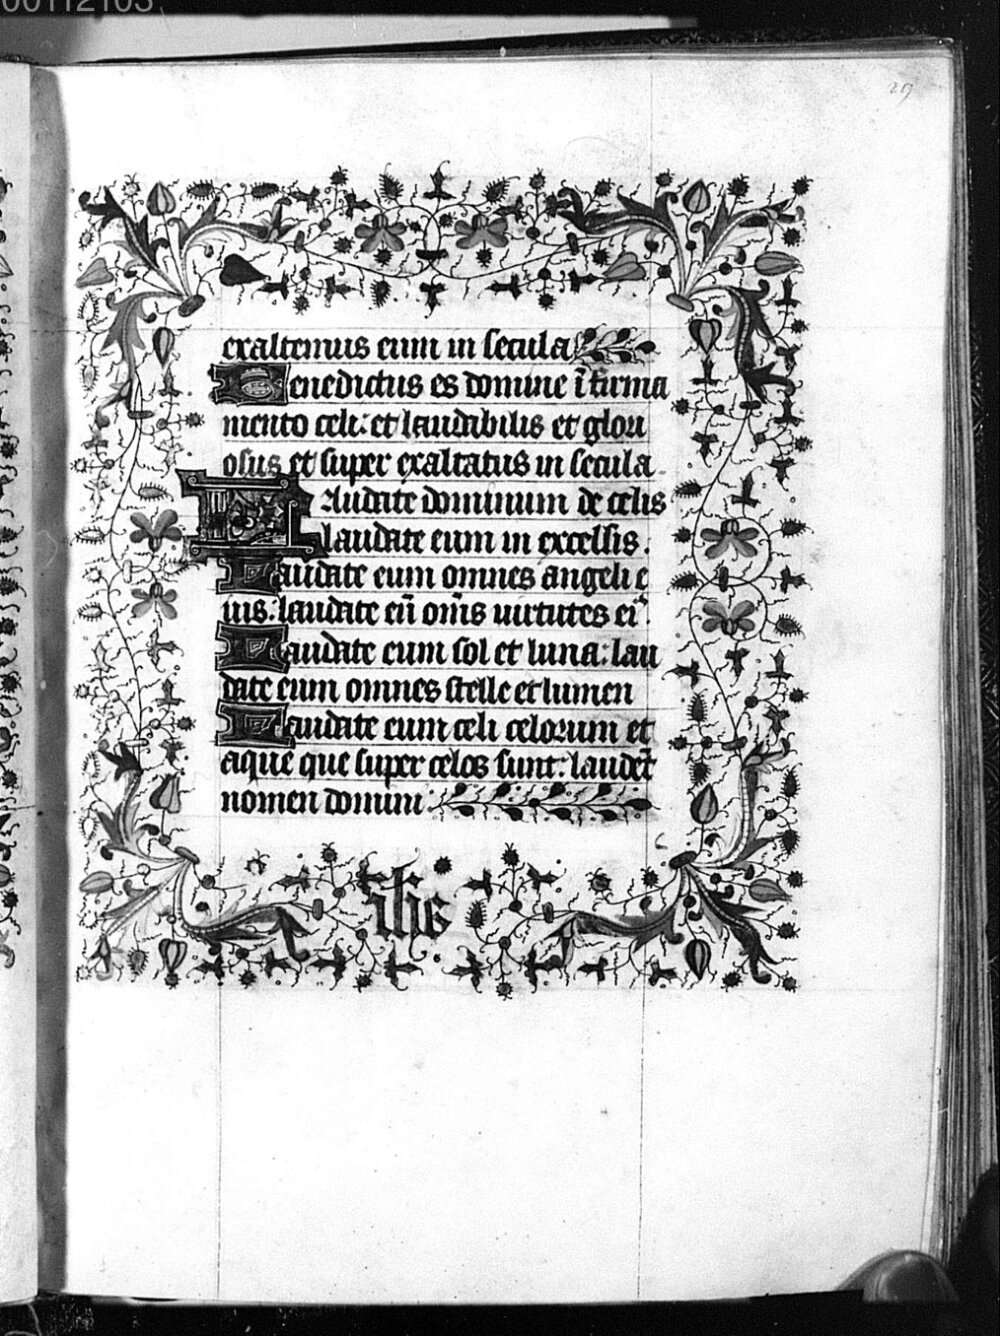 00112103
29
exaltemus eum in secula
Benedictus es domine ī firma
mento celi: et laudabilis et glori
osus et super exaltatus in secula.
Laudate dominum de celis
laudate eum in excelsis.
Laudate eum omnes angeli e
ius: laudate eū om̄s uirtutes eiꝰ.
Laudate eum sol et luna: lau
date eum omnes stelle et lumen
Laudate eum celi celorum et
aque que super celos sunt: laudēt
nomen domini
ihc